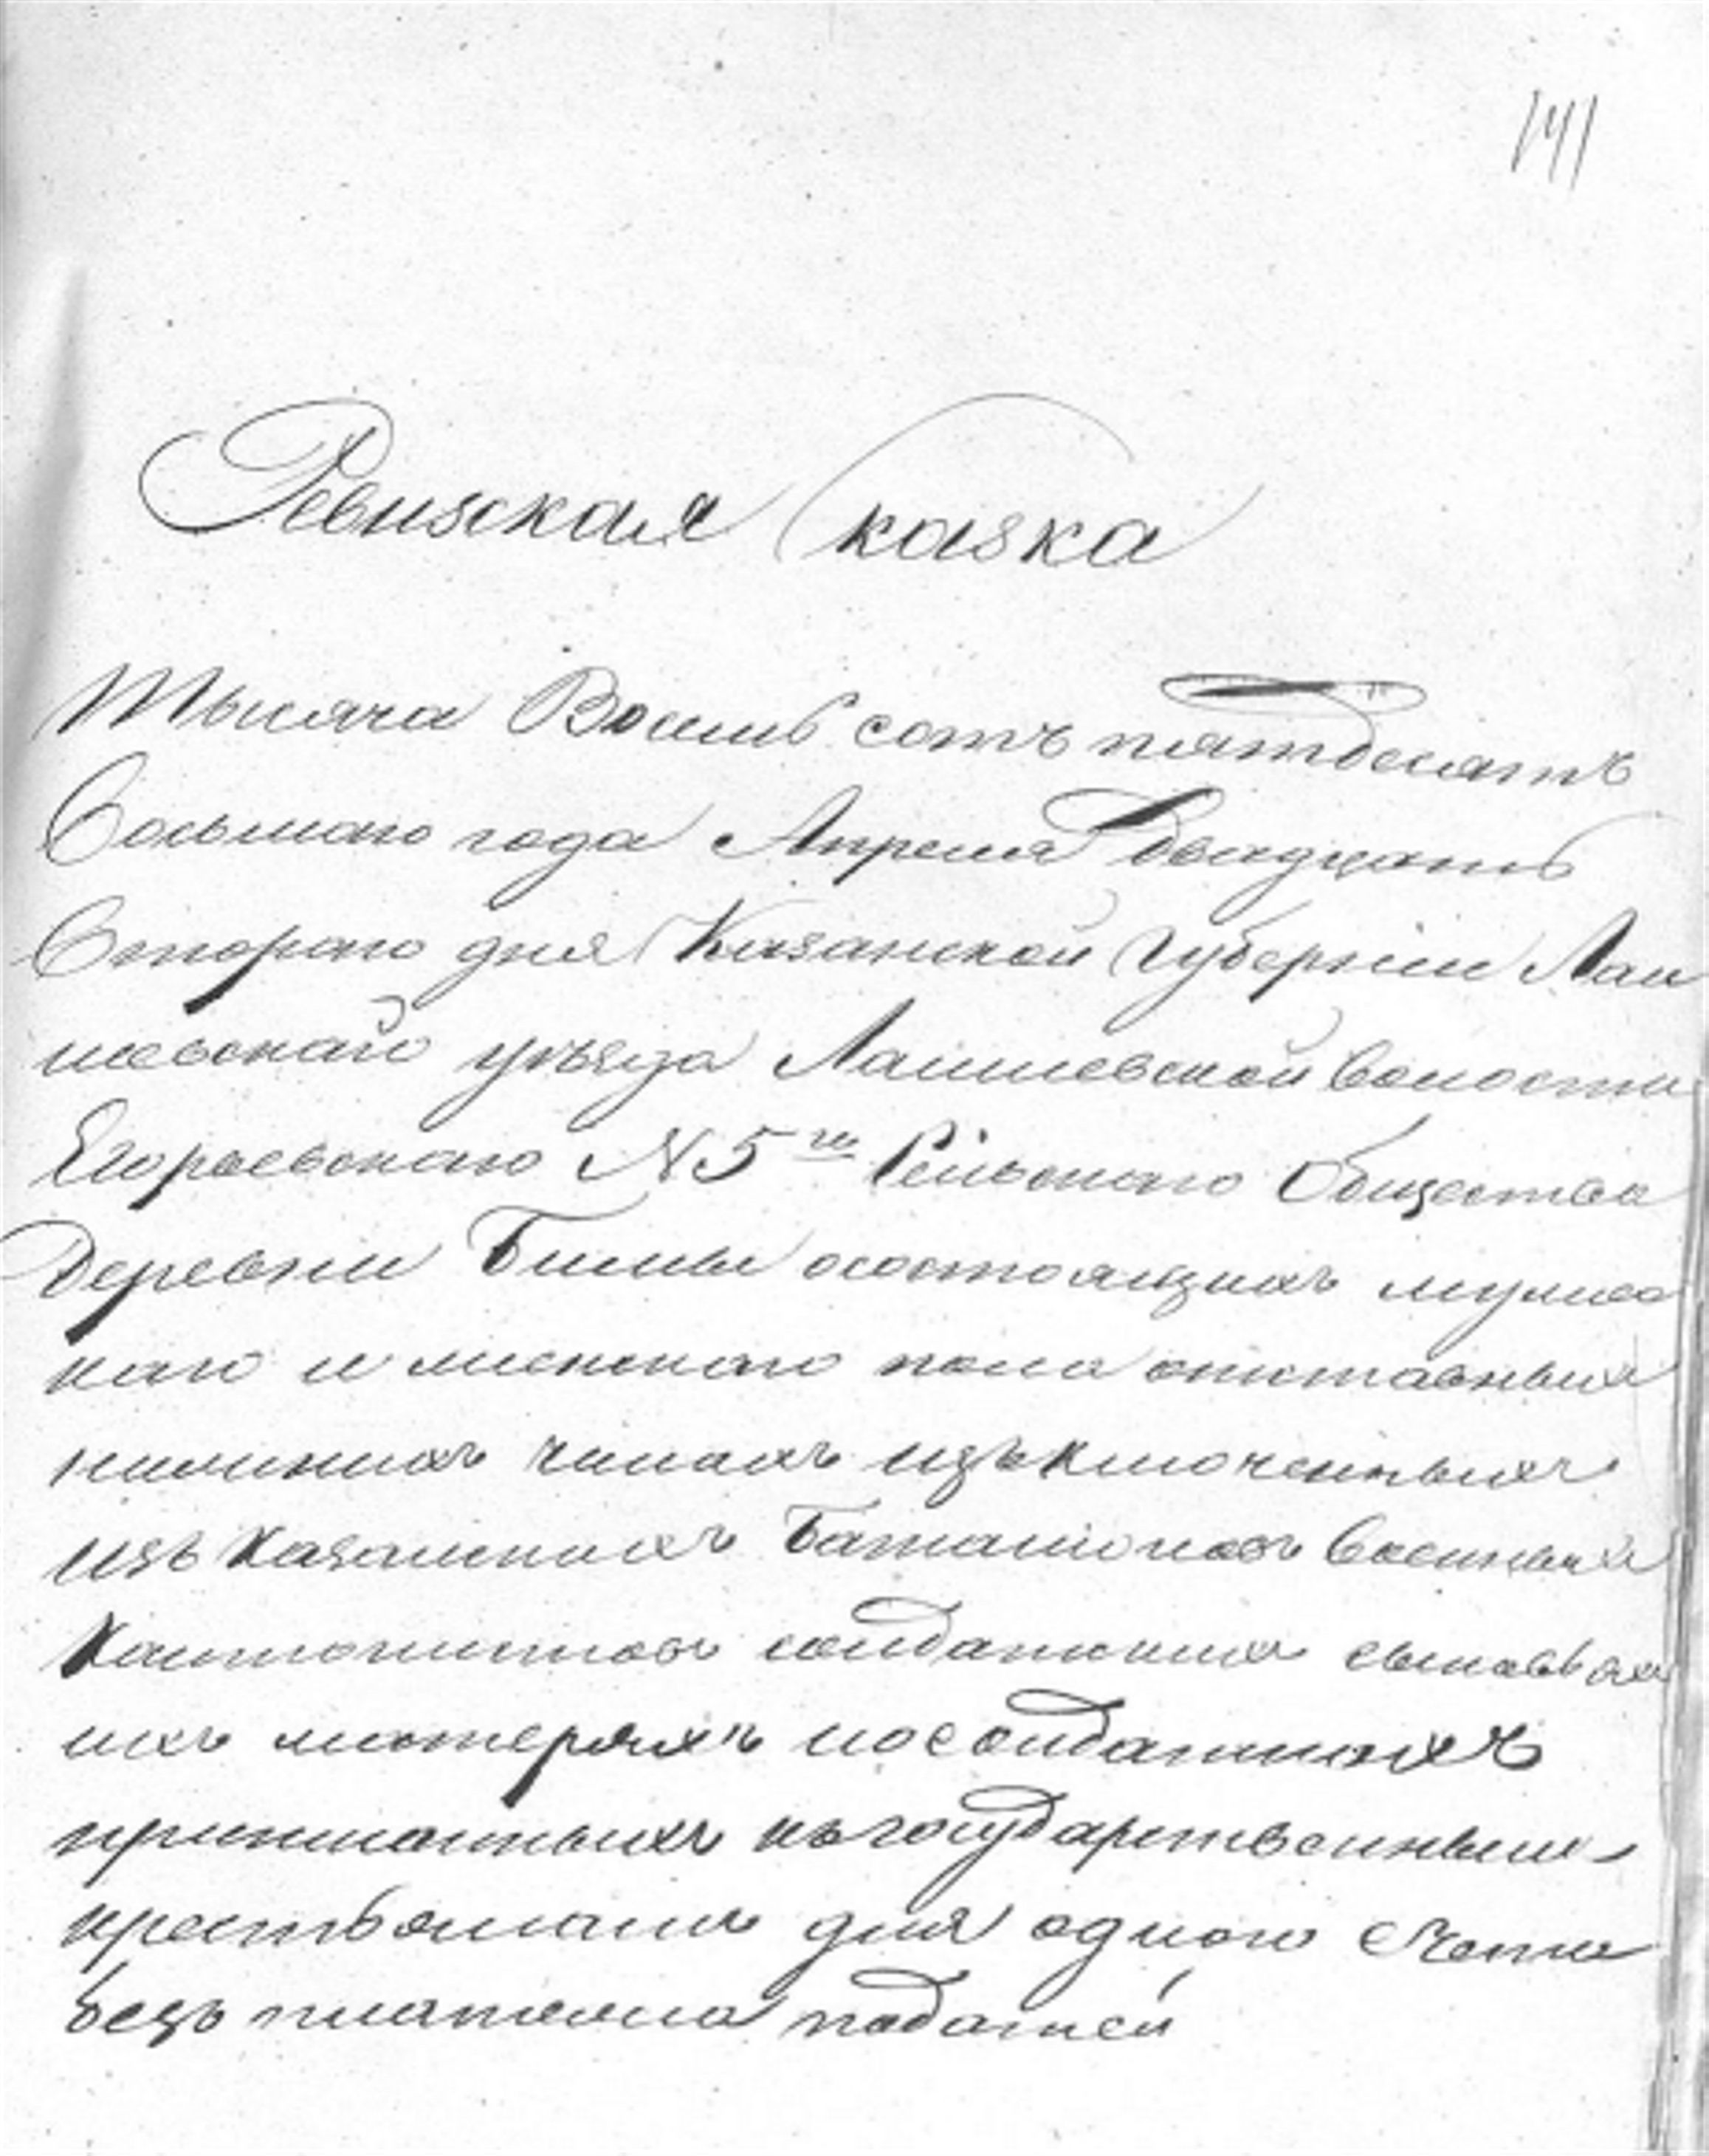 141
Ревизская сказка
Тысяча Восемь сотъ пятдесятъ
Восьмаго года Апреля двадцать
Втораго дня Казанской Губернiи Лаи
шевскай уъезда Лаишевской волости
Егорьевскаго N 5го Сельскаго Общества
Деревни состоящихъ мужес
каго и женскаго пола отставныхъ
нижнихъ чинахъ изъключенныхъ
изъ Казанскихъ Баталiоновъ военныхъ
Кантонистовъ солдатскихъ сыновьях
ихъ матеряхъ и о солдаткахъ
приписанныхъ къ государственнымъ
крестьянамъ для одного Счета
безъ платежа податей